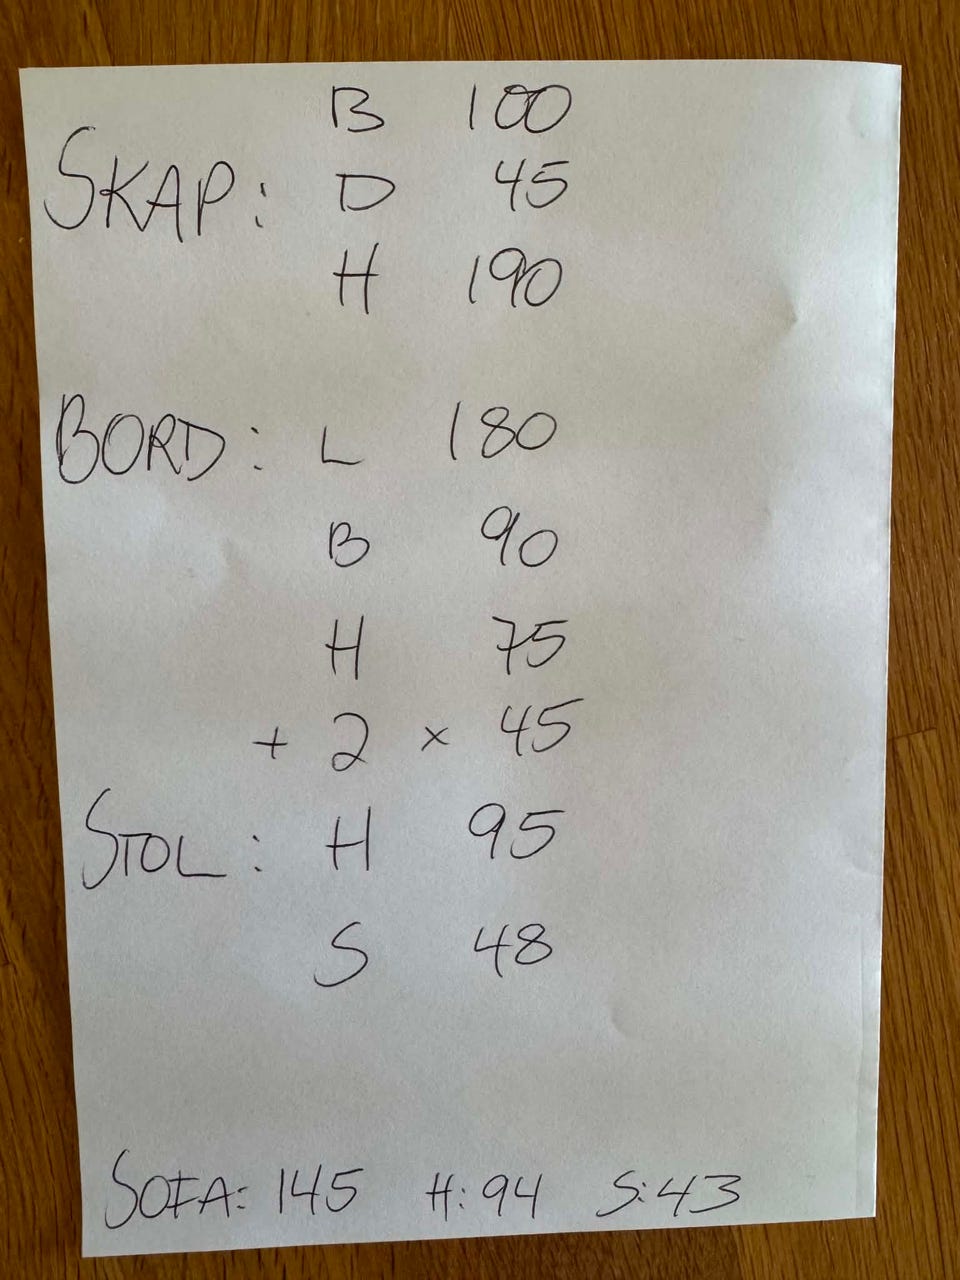 B 100
SKAP: D 45
H 190
BORD: L 180
B 90
H 75
+ 2 × 45
STOL: H 95
S 48
SOFA: 145 H: 94 S: 43